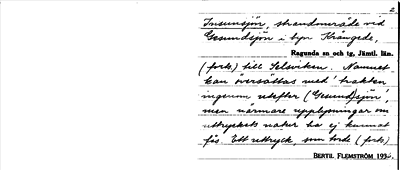 2
Insunsjön, strandområde vid
Gesundsjön i byn Krångede,
Ragunda sn och tg, Jämtl. län.
(forts.) till Selsviken. Namnet
kan översättas med 'trakten
ingenom utefter (Gesund)sjön',
men närmare upplysningar om
uttryckets natur ha ej kunnat
fås. Ett uttryck, som torde (forts.)
BERTIL FLEMSTRÖM 193